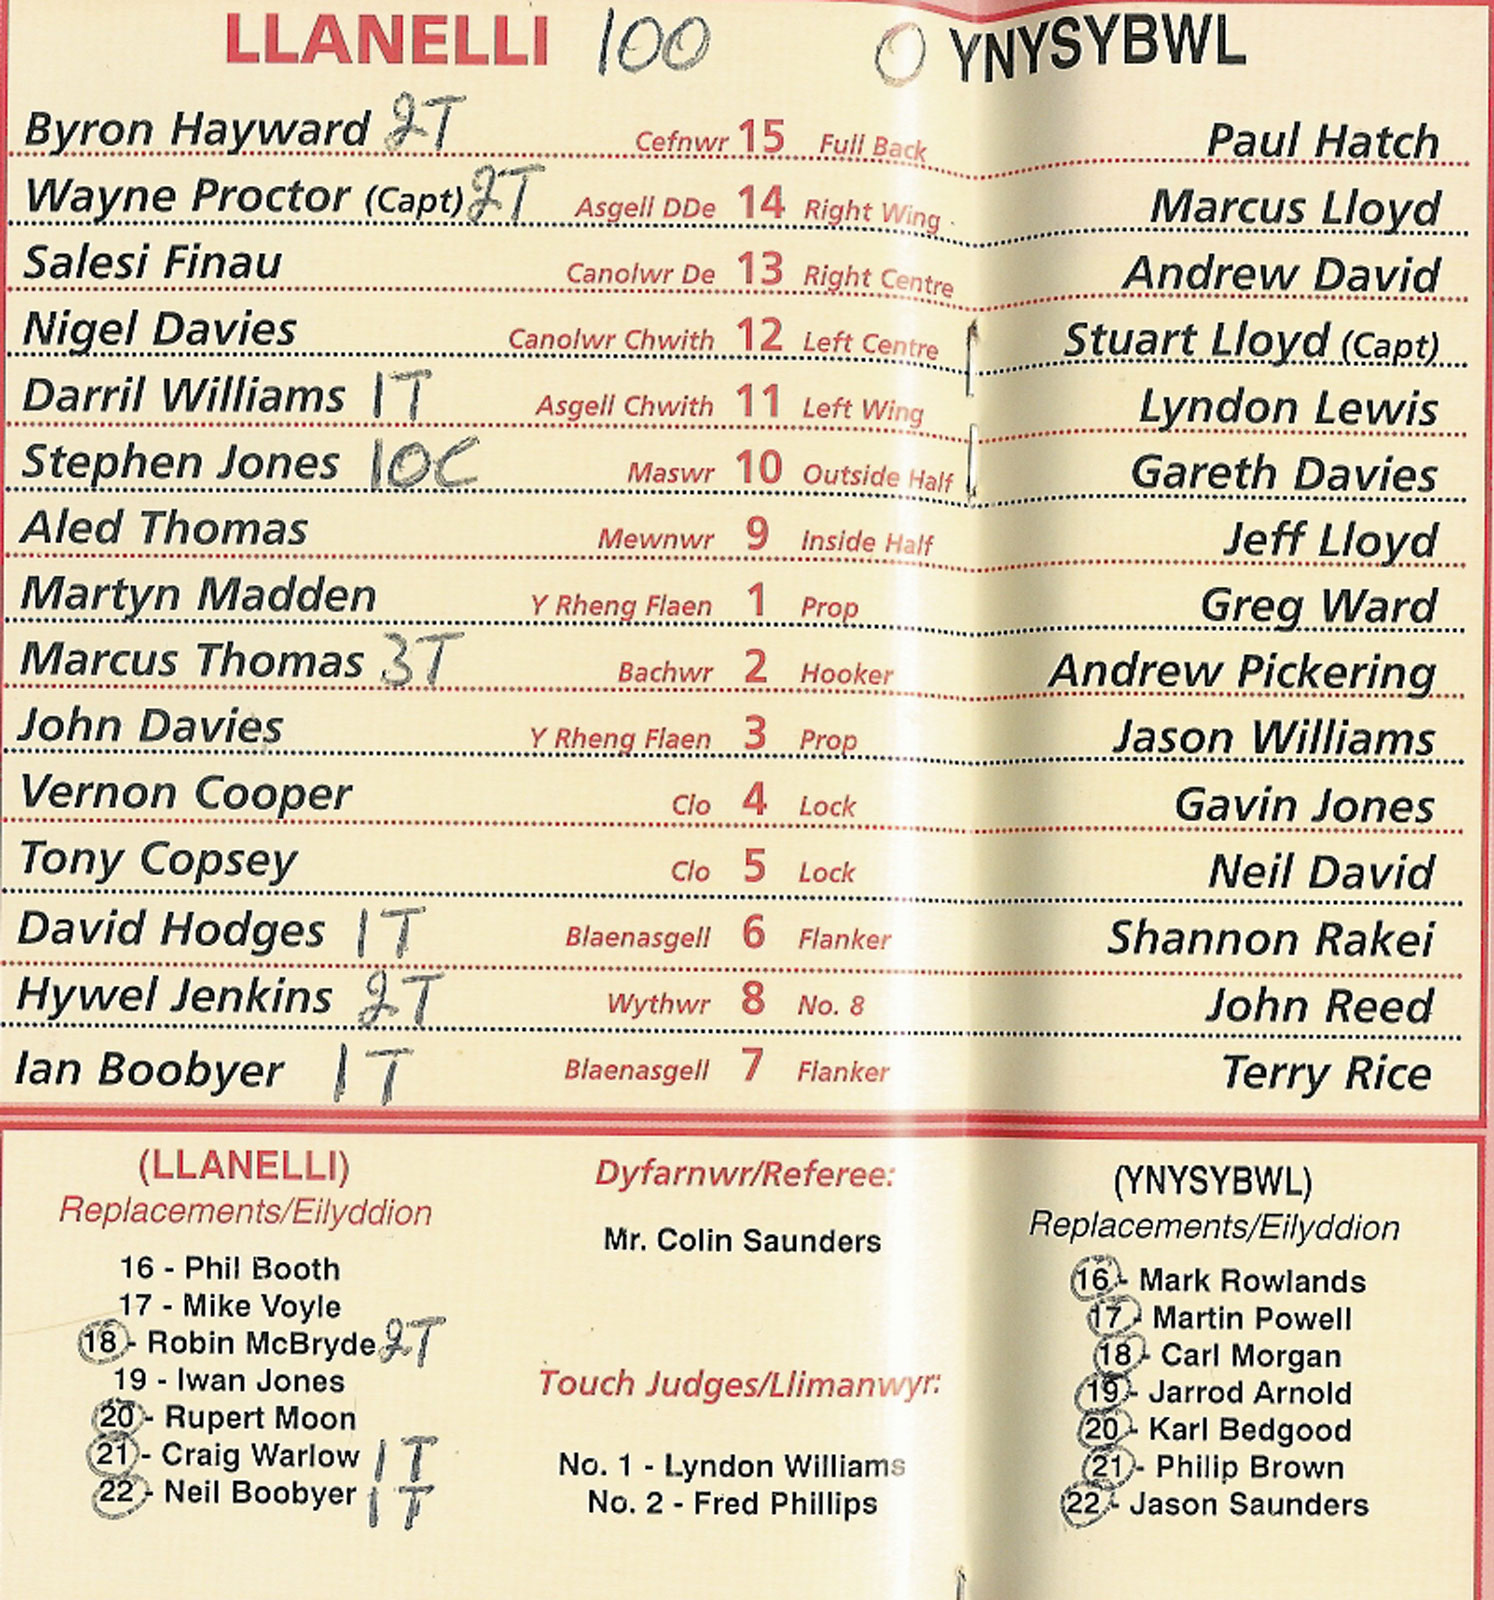 LLANELLI 100 0 YNYSYBWL
Byron Hayward 2T Cefnwr 15 Full Back Paul Hatch
Wayne Proctor (Capt) 2T Asgell DDe 14 Right Wing Marcus Lloyd
Salesi Finau Canolwr De 13 Right Centre Andrew David
Nigel Davies Canolwr Chwith 12 Left Centre Stuart Lloyd (Capt)
Darril Williams 1T Asgell Chwith 11 Left Wing Lyndon Lewis
Stephen Jones 10C Maswr 10 Outside Half Gareth Davies
Aled Thomas Mewnwr 9 Inside Half Jeff Lloyd
Martyn Madden Y Rheng Flaen 1 Prop Greg Ward
Marcus Thomas 3T Bachwr 2 Hooker Andrew Pickering
John Davies Y Rheng Flaen 3 Prop Jason Williams
Vernon Cooper Clo 4 Lock Gavin Jones
Tony Copsey Clo 5 Lock Neil David
David Hodges 1T Blaenasgell 6 Flanker Shannon Rakei
Hywel Jenkins 2T Wythwr 8 No. 8 John Reed
Ian Boobyer 1T Blaenasgell 7 Flanker Terry Rice
(LLANELLI)
Replacements/Eilyddion
16 - Phil Booth
17 - Mike Voyle
18 - Robin McBryde 2T
19 - Iwan Jones
20 - Rupert Moon
21 - Craig Warlow 1T
22 - Neil Boobyer 1T
Dyfarnwr/Referee:
Mr. Colin Saunders
Touch Judges/Llimanwyr:
No. 1 - Lyndon Williams
No. 2 - Fred Phillips
(YNYSYBWL)
Replacements/Eilyddion
16 - Mark Rowlands
17 - Martin Powell
18 - Carl Morgan
19 - Jarrod Arnold
20 - Karl Bedgood
21 - Philip Brown
22 - Jason Saunders